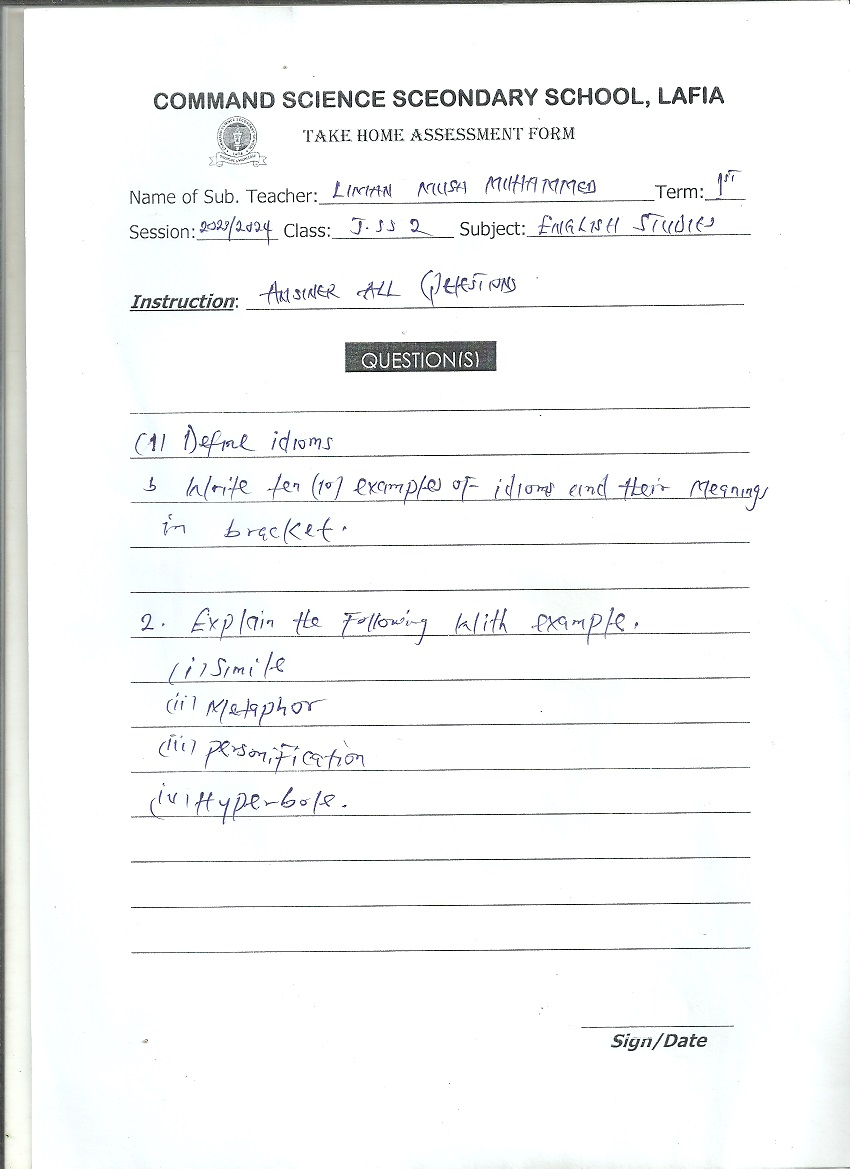 COMMAND SCIENCE SCEONDARY SCHOOL, LAFIA
TAKE HOME ASSESSMENT FORM
Name of Sub. Teacher: LIMAN MUSA MUHAMMED Term: 1ST
Session: 2023/2024 Class: J.SS 2 Subject: ENGLISH STUDIES
Instruction: ANSWER ALL QUESTIONS
QUESTION(S)
(1) Define idioms
b Write ten (10) examples of idioms and their Meanings
in bracket.
2. Explain the Following With example.
(i) Simile
(ii) Metaphor
(iii) personification
(iv) Hyperbole.
Sign/Date